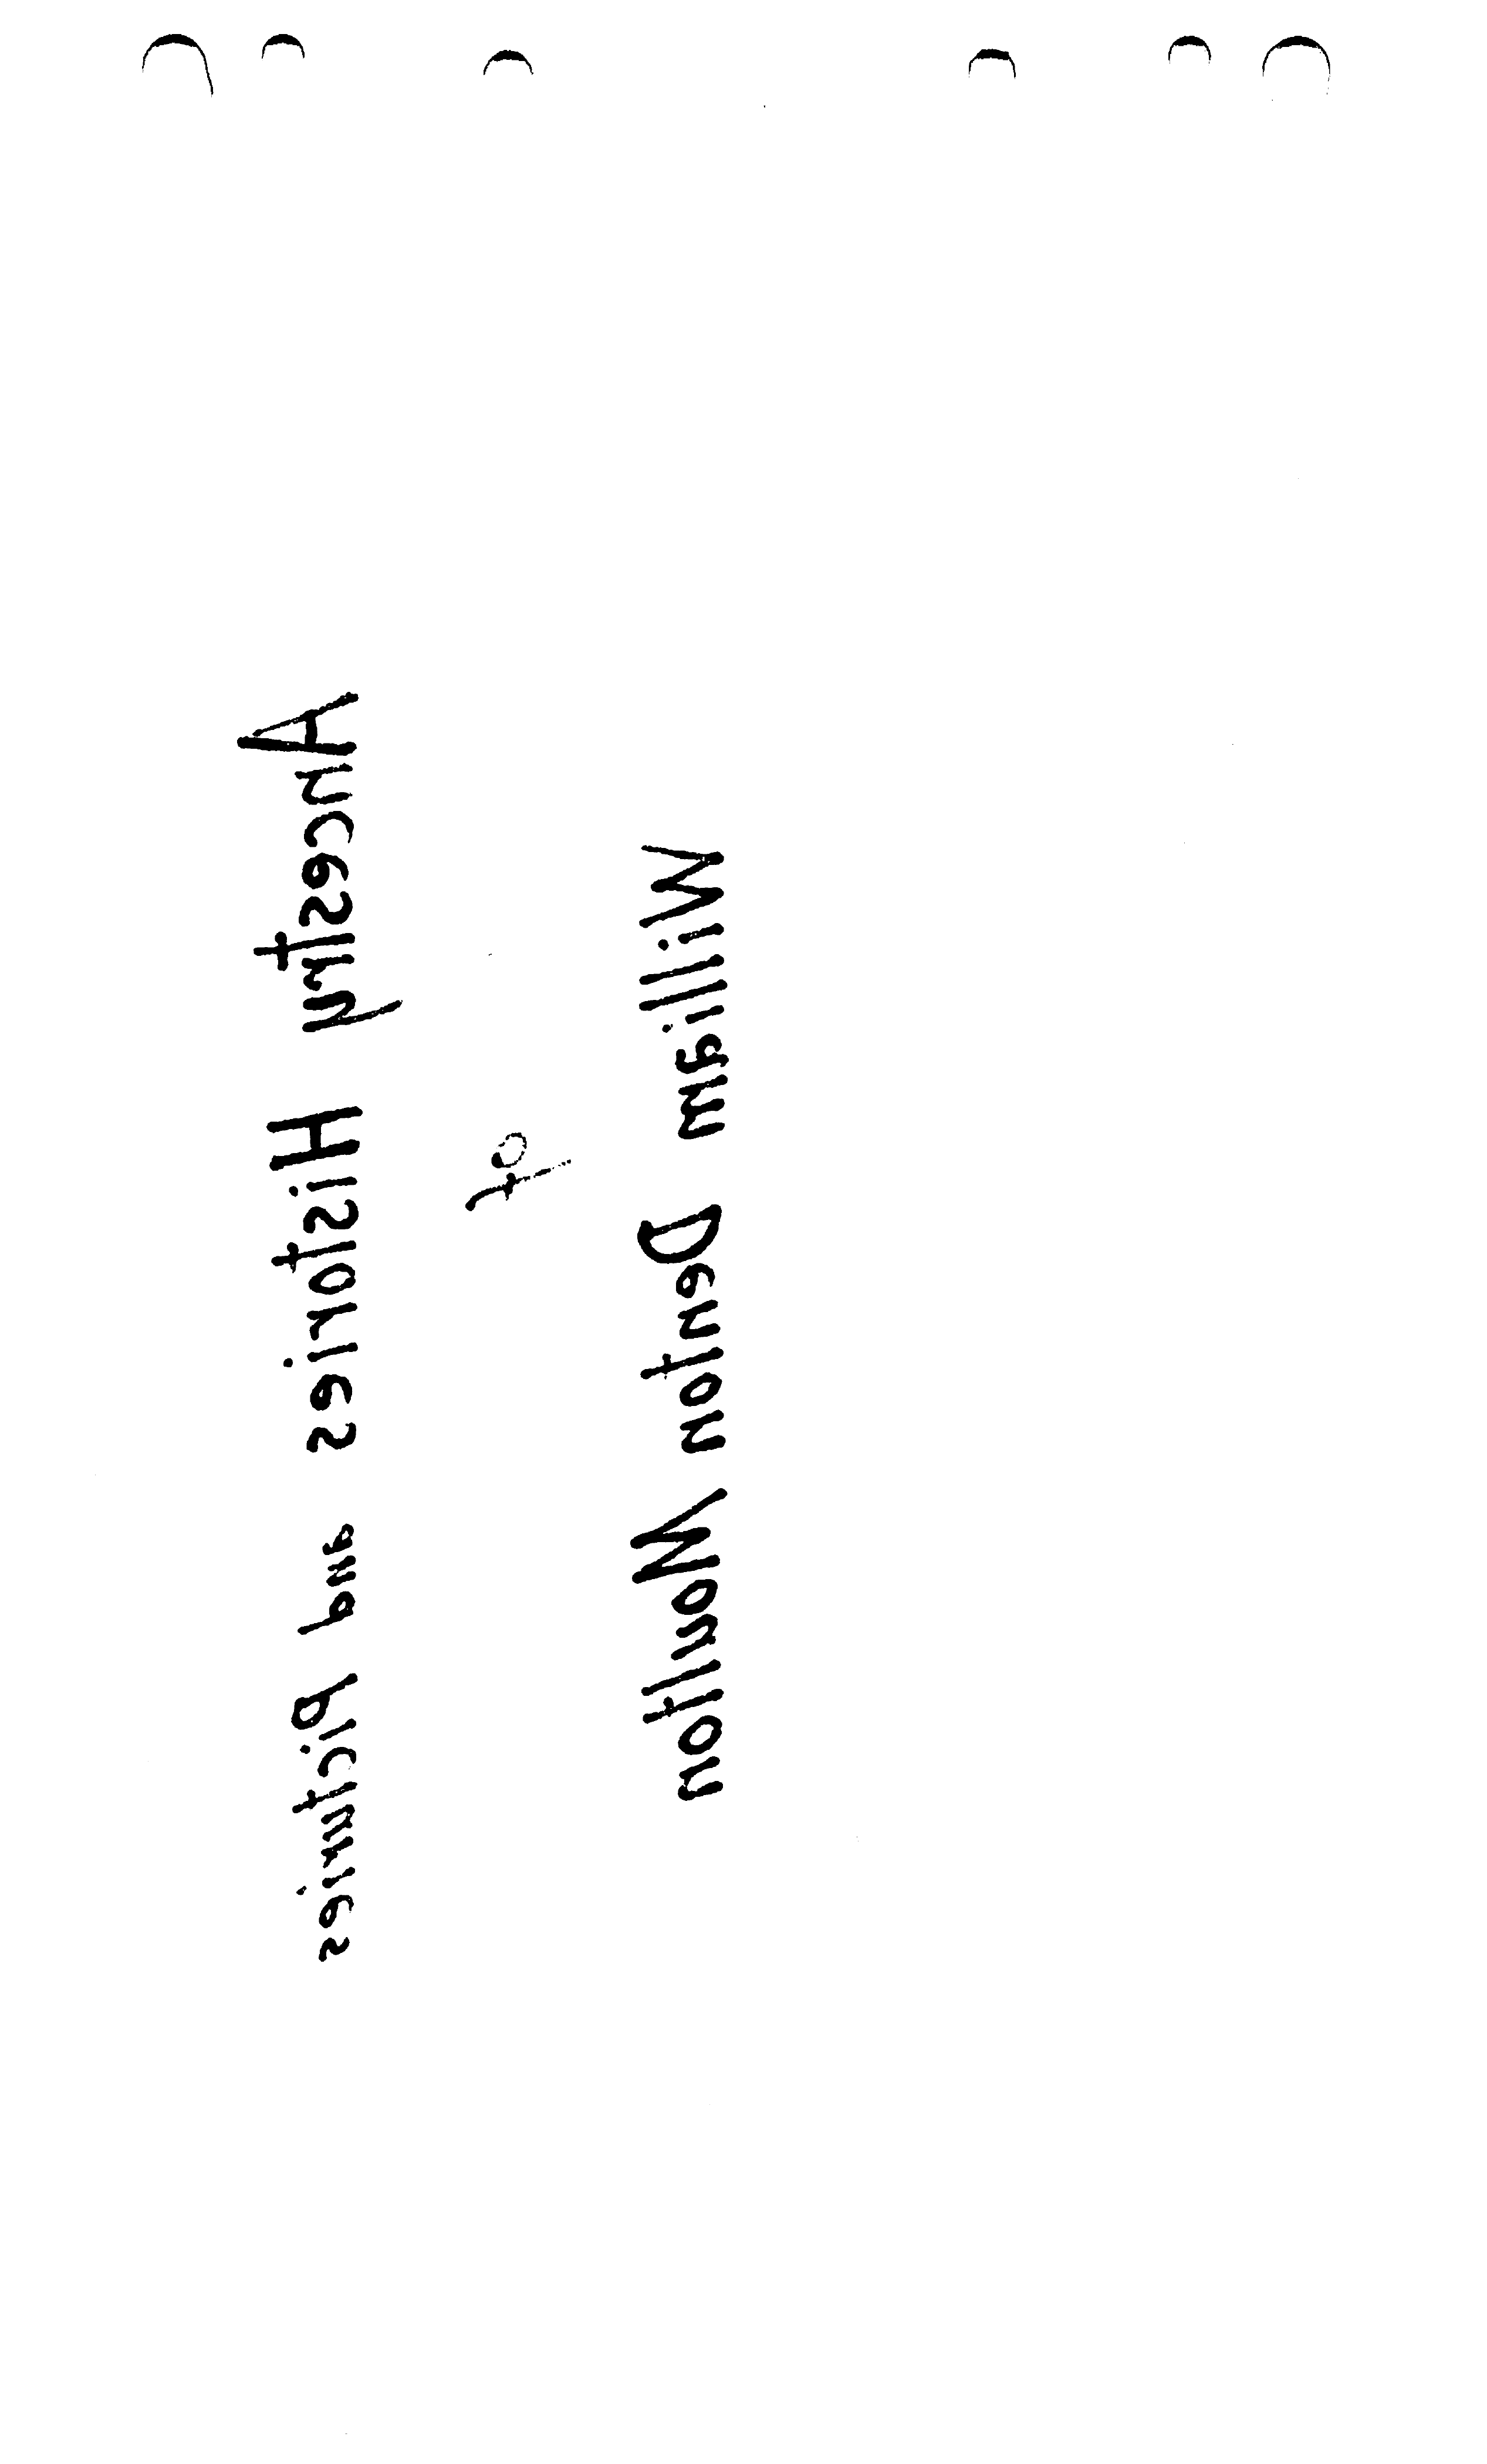 Ancestry Histories and Picturies
of
William Denton Moulton